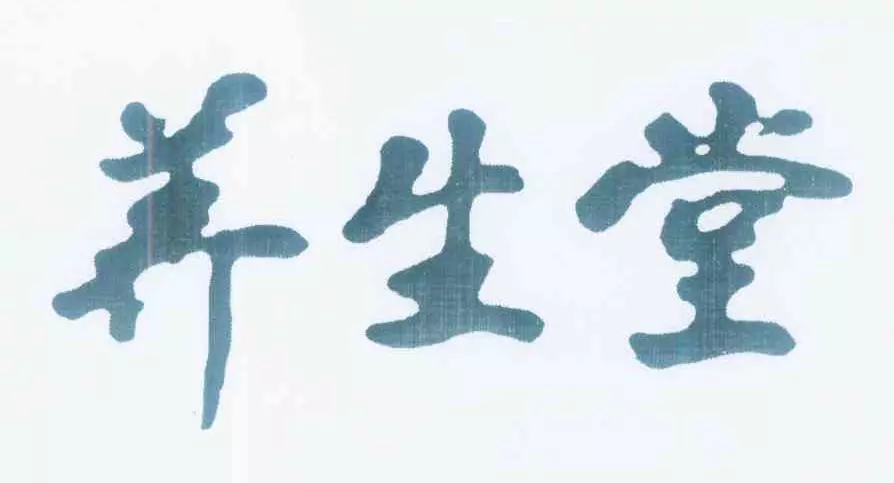 养生堂